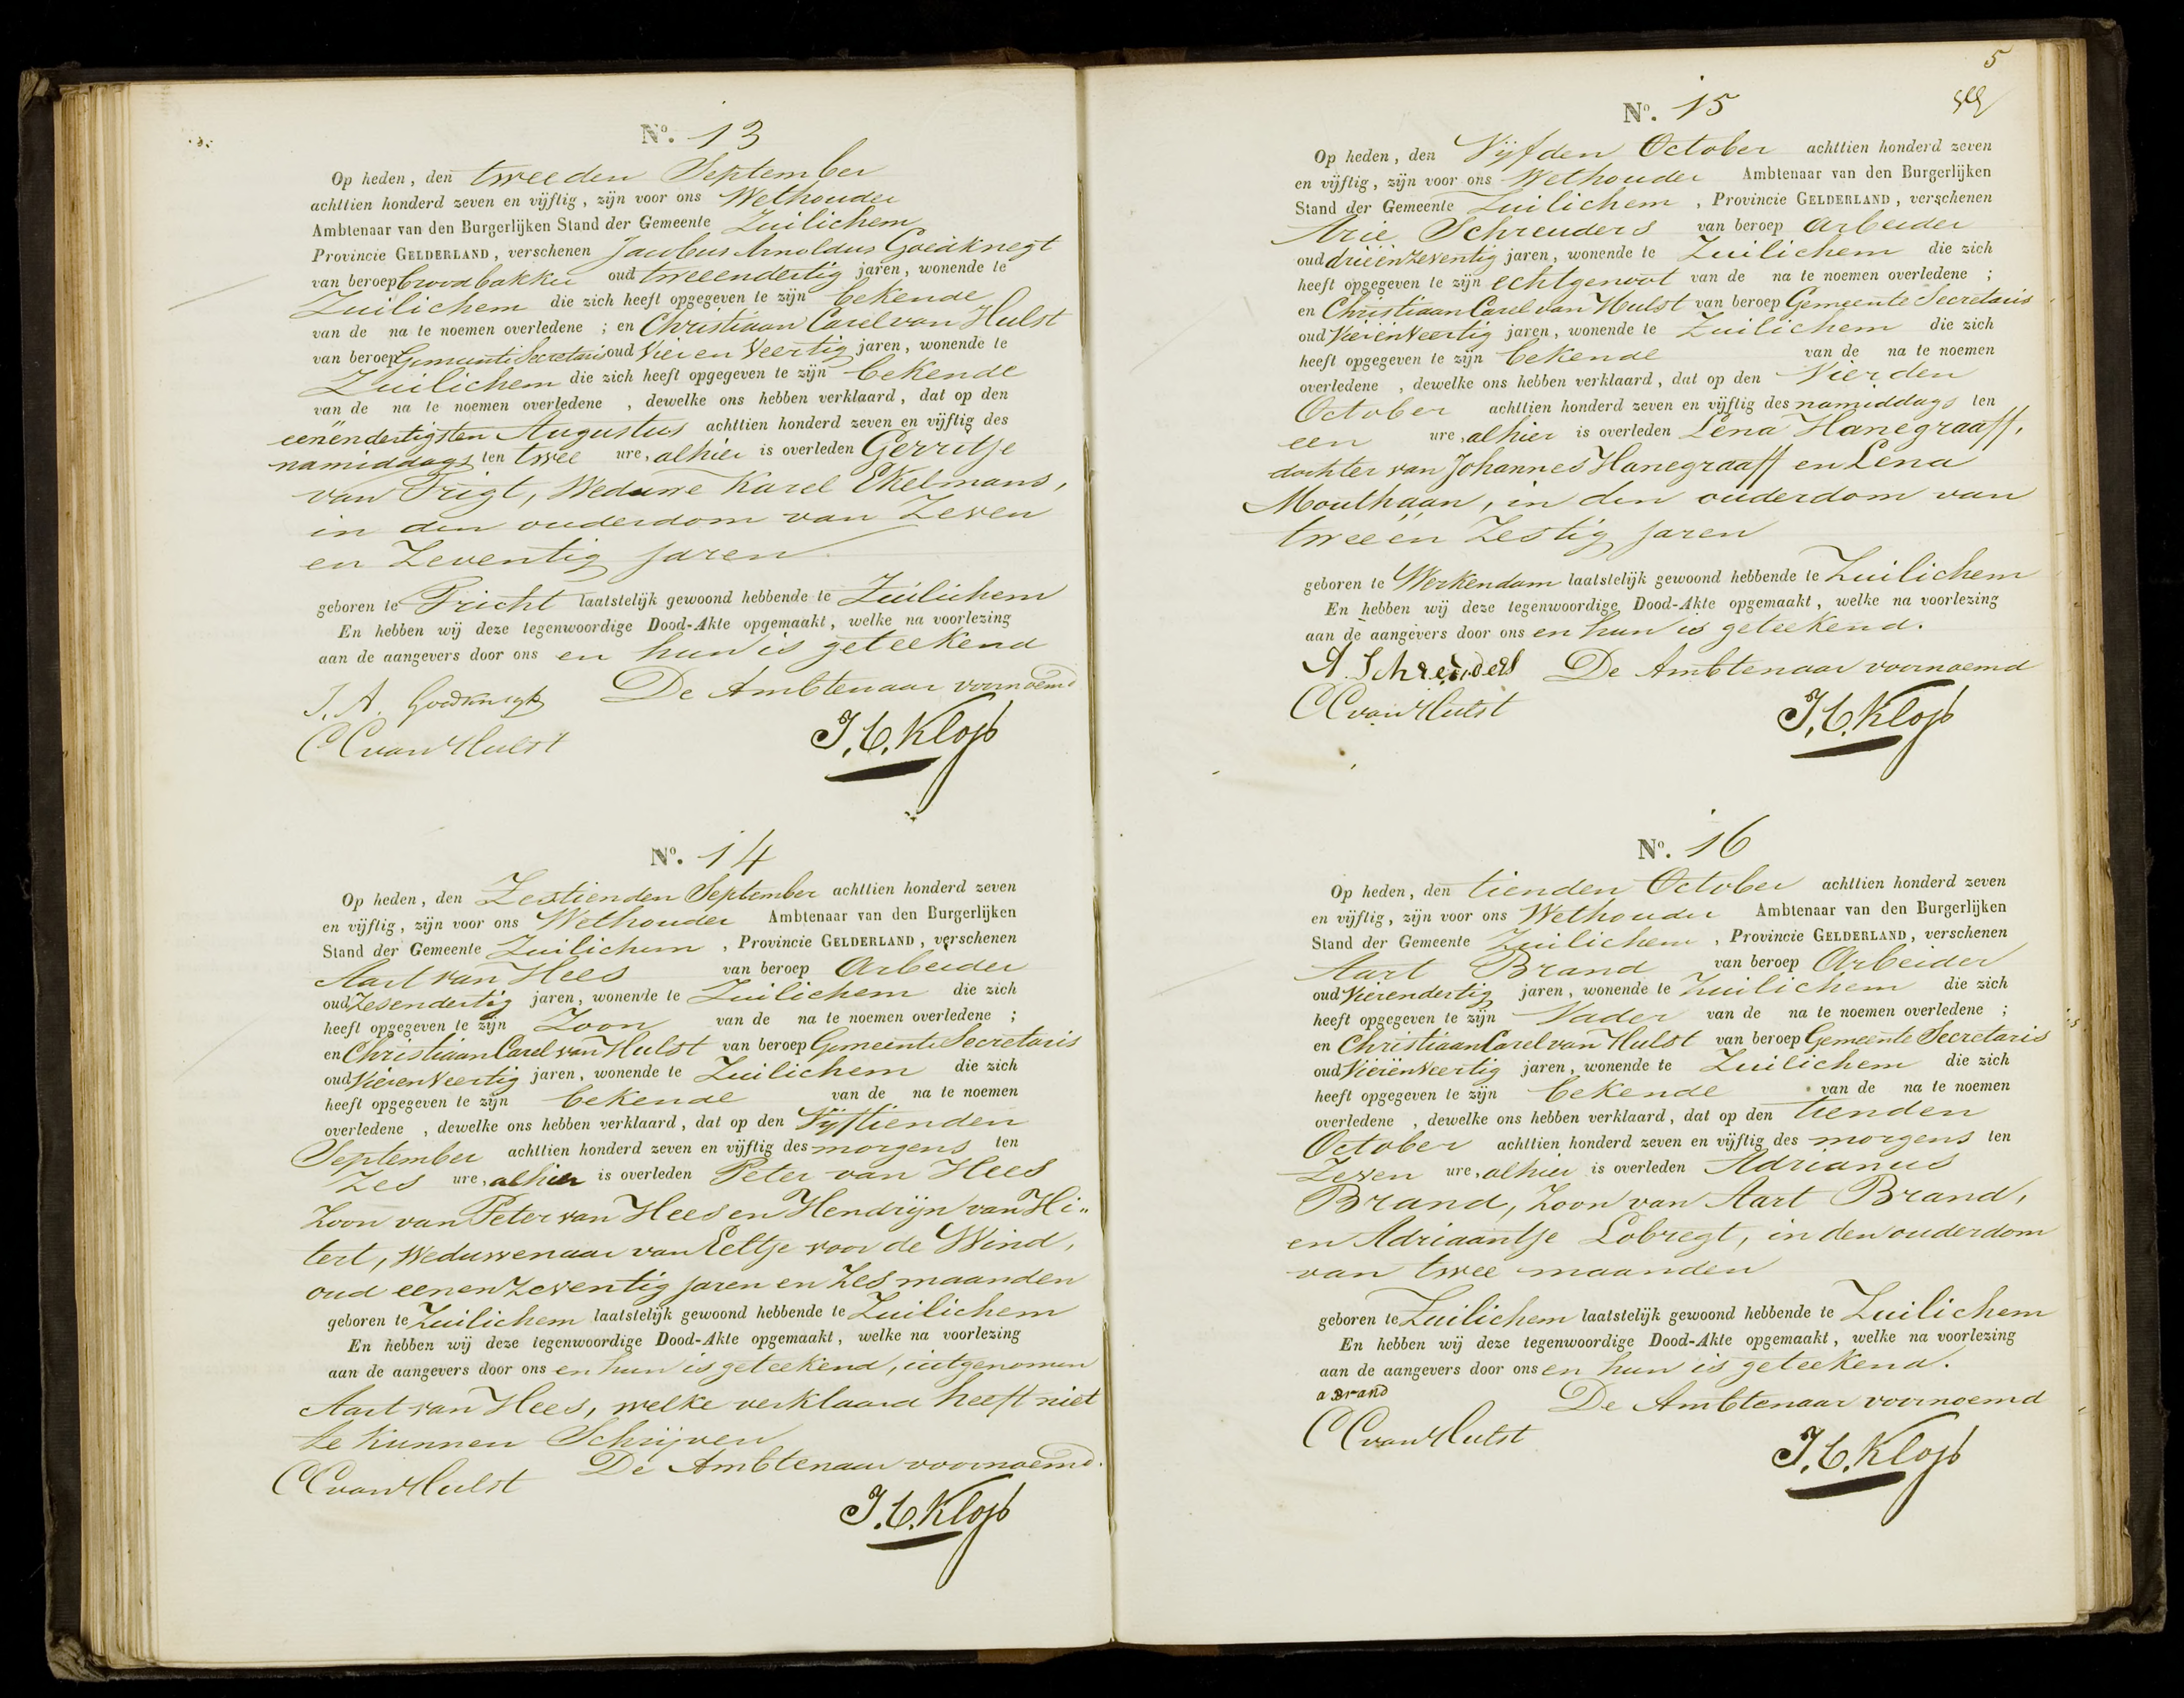 No. 13
Op heden, den tweeden September
achttien honderd zeven en vijftig, zijn voor ons Wethouder
Ambtenaar van den Burgerlijken Stand der Gemeente Zuilichem
Provincie GELDERLAND, verschenen Jacobus Arnoldus Goedknegt
van beroep broodbakker oud tweeendertig jaren, wonende te
Zuilichem die zich heeft opgegeven te zijn bekende
van de na te noemen overledene ; en Christiaan Carel van Hulst
van beroep Gemeente Secretaris oud Vier en Veertig jaren, wonende te
Zuilichem die zich heeft opgegeven te zijn bekende
van de na te noemen overledene , dewelke ons hebben verklaard, dat op den
eenëndertigsten Augustus achttien honderd zeven en vijftig des
namiddags ten twee ure, alhier is overleden Gerritje
van Trigt, Weduwe Karel Ekelmans,
in den ouderdom van Zeven
en Zeventig jaren
geboren te Tricht laatstelijk gewoond hebbende te Zuilichem
En hebben wij deze tegenwoordige Dood-Akte opgemaakt, welke na voorlezing
aan de aangevers door ons en hun is geteekend
J. A. Goedknegt De Ambtenaar voornoemd
CC van Hulst J. C. Klop
No. 14
Op heden, den Zestienden September achttien honderd zeven
en vijftig, zijn voor ons Wethouder Ambtenaar van den Burgerlijken
Stand der Gemeente Zuilichem , Provincie GELDERLAND, verschenen
Aart van Hees van beroep Arbeider
oud Zesendertig jaren, wonende te Zuilichem die zich
heeft opgegeven te zijn Zoon van de na te noemen overledene ;
en Christiaan Carel van Hulst van beroep Gemeente Secretaris
oud Vierenveertig jaren, wonende te Zuilichem die zich
heeft opgegeven te zijn bekende van de na te noemen
overledene , dewelke ons hebben verklaard, dat op den Vijftienden
September achttien honderd zeven en vijftig des morgens ten
Zes ure, alhier is overleden Peter van Hees
Zoon van Peter van Hees en Hendrijn van Hi„
tert, Weduwenaar van Eeltje voor de Wind,
oud eenenzeventig jaren en zes maanden
geboren te Zuilichem laatstelijk gewoond hebbende te Zuilichem
En hebben wij deze tegenwoordige Dood-Akte opgemaakt, welke na voorlezing
aan de aangevers door ons en hun is geteekend, uitgenomen
Aart van Hees, welke verklaard heeft niet
te kunnen Schrijven
De Ambtenaar voornoemd.
CC van Hulst J. C. Klop
5
No. 15
Op heden, den Vijfden October achttien honderd zeven
en vijftig, zijn voor ons Wethouder Ambtenaar van den Burgerlijken
Stand der Gemeente Zuilichem , Provincie GELDERLAND, verschenen
Arie Schreuders van beroep Arbeider
oud drieënzeventig jaren, wonende te Zuilichem die zich
heeft opgegeven te zijn echtgenoot van de na te noemen overledene ;
en Christiaan Carel van Hulst van beroep Gemeente Secretaris
oud Vierënveertig jaren, wonende te Zuilichem die zich
heeft opgegeven te zijn bekende van de na te noemen
overledene , dewelke ons hebben verklaard, dat op den Vierden
October achttien honderd zeven en vijftig des namiddags ten
een ure, alhier is overleden Lena Hanegraaff,
dochter van Johannes Hanegraaff en Lena
Mouthaan, in den ouderdom van
tweeën Zestig jaren
geboren te Werkendam laatstelijk gewoond hebbende te Zuilichem
En hebben wij deze tegenwoordige Dood-Akte opgemaakt, welke na voorlezing
aan de aangevers door ons en hun is geteekend.
A. Schreuders De Ambtenaar voornoemd
CC van Hulst J. C. Klop
No. 16
Op heden, den tienden October achttien honderd zeven
en vijftig, zijn voor ons Wethouder Ambtenaar van den Burgerlijken
Stand der Gemeente Zuilichem , Provincie GELDERLAND, verschenen
Aart Brand van beroep Arbeider
oud Vierendertig jaren, wonende te Zuilichem die zich
heeft opgegeven te zijn Vader van de na te noemen overledene ;
en Christiaan Carel van Hulst van beroep Gemeente Secretaris
oud Vierënveertig jaren, wonende te Zuilichem die zich
heeft opgegeven te zijn bekende van de na te noemen
overledene , dewelke ons hebben verklaard, dat op den tienden
October achttien honderd zeven en vijftig des morgens ten
Zeven ure, alhier is overleden Adrianus
Brand, Zoon van Aart Brand,
en Adriaantje Lobregt, in den ouderdom
van twee maanden
geboren te Zuilichem laatstelijk gewoond hebbende te Zuilichem
En hebben wij deze tegenwoordige Dood-Akte opgemaakt, welke na voorlezing
aan de aangevers door ons en hun is geteekend.
a Brand De Ambtenaar voornoemd
CC van Hulst J. C. Klop